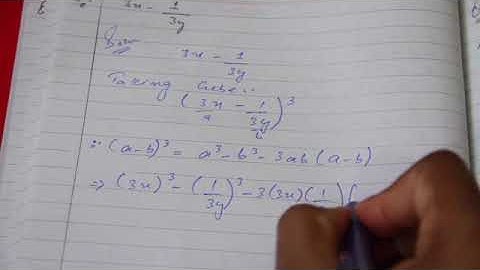 3x - 1/3y
Soln
3x - 1/3y
Taking Cube:
(3x - 1/3y)^3
a b
∵ (a-b)^3 = a^3 - b^3 - 3ab(a-b)
⇒ (3x)^3 - (1/3y)^3 - 3(3x)(1/